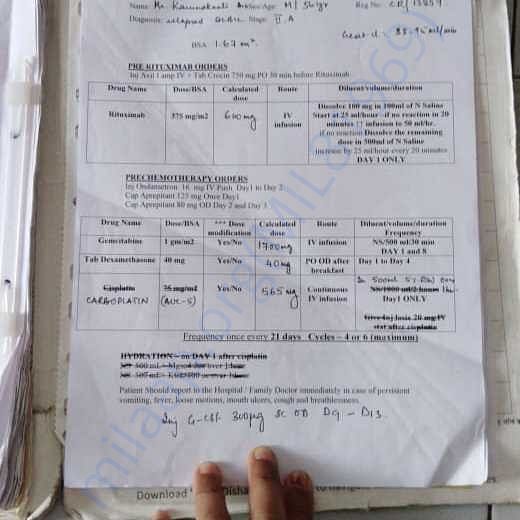 Name: Mr. Age: M/ 56yr Reg No: CR/
Diagnosis: relapsed DLBCL Stage: II A
88.95 ml/min
BSA 1.67 m².
PRE RITUXIMAB ORDERS
Inj Avil 1 amp IV + Tab Crocin 750 mg PO 30 min before Rituximab
Drug Name Dose/BSA Calculated dose Route Diluent/volume/duration
Rituximab 375 mg/m2 600 mg IV infusion
Dissolve 100 mg in 100ml of N Saline
Start at 25 ml/hour if no reaction in 20
minutes infusion to 50 ml/hr.
if no reaction Dissolve the remaining
dose in 500ml of N Saline
increase by 25 ml/hour every 20 minutes
DAY 1 ONLY
PRECHEMOTHERAPY ORDERS
Inj Ondansetron 16 mg IV Push Day1 to Day 2
Cap Aprepitant 125 mg Once Day1
Cap Aprepitant 80 mg OD Day 2 and Day 3
Drug Name Dose/BSA *** Dose modification Calculated dose Route Diluent/volume/duration Frequency
Gemcitabine 1 gm/m2 Yes/No 1700mg IV infusion NS/500 ml/30 min DAY 1 and 8
Tab Dexamethasone 40 mg Yes/No 40mg PO OD after breakfast Day 1 to Day 4
Cisplatin 35 mg/m2 Yes/No 565 mg Continuous IV infusion In 500ml 5% over
CARBOPLATIN (AUC-5) NS/1000 ml/2 hours 1hr
Day1 ONLY
Give Inj lasix 20 mg IV
stat after cisplatin
Frequency once every 21 days Cycles – 4 or 6 (maximum)
HYDRATION – on DAY 1 after cisplatin
500 ml + over 1 hour
over 1 hour
Patient Should report to the Hospital / Family Doctor immediately in case of persistent
vomiting, fever, loose motions, mouth ulcers, cough and breathlessness.
Inj G-CSF 300µg SC OD D9 – D13.
Download